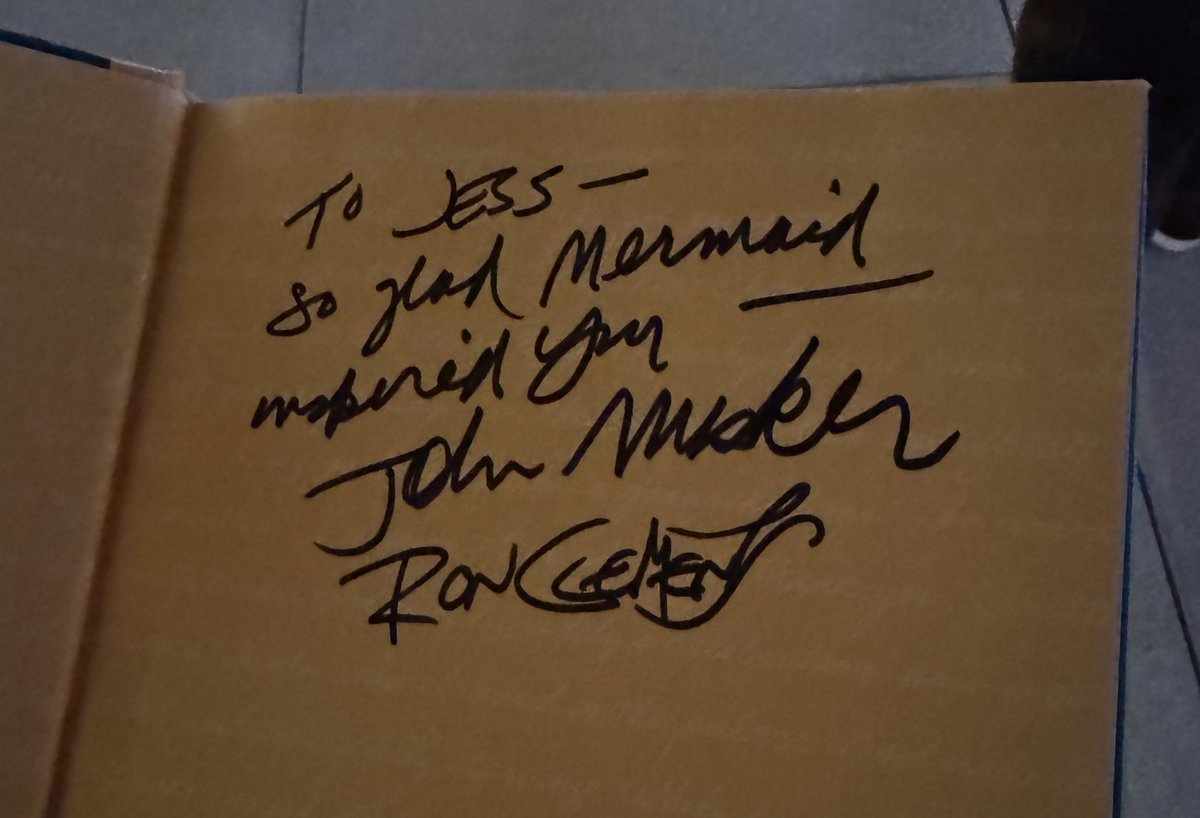 To JESS —
so glad Mermaid
inspired you
John Musker
RON CLEMENTS